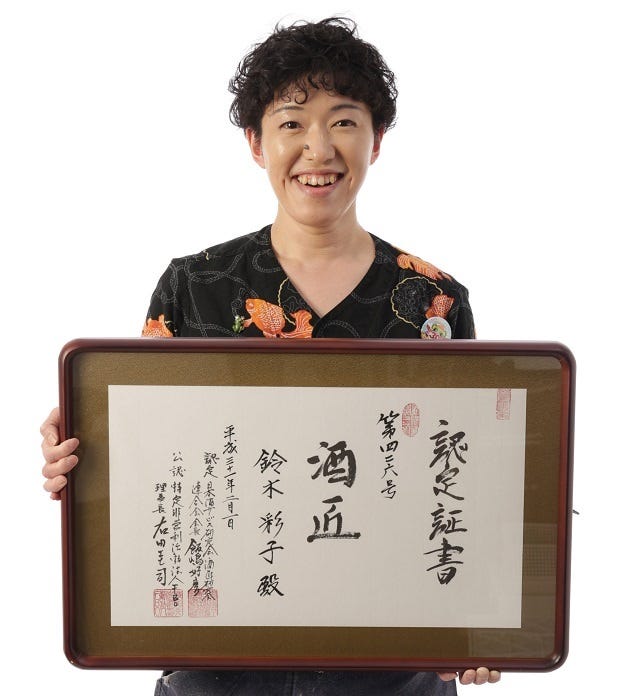 認定証書
第四二六号
酒匠
鈴木彩子殿
平成三十一年二月一日
認定 日本酒サービス研究会・酒匠研究会
連合会会長 飯嶋好彦
公認 特定非営利活動法人
理事長 右田圭司